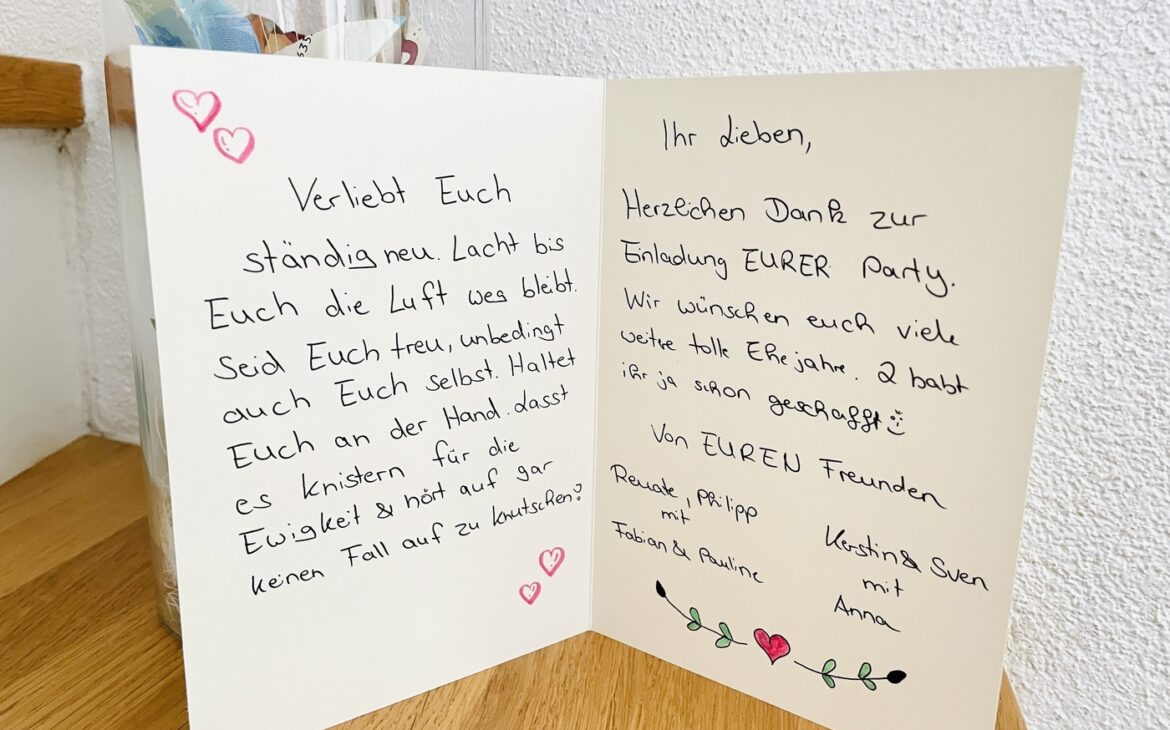 Verliebt Euch
ständig neu. Lacht bis
Euch die Luft weg bleibt.
Seid Euch treu, unbedingt
auch Euch selbst. Haltet
Euch an der Hand. dasst
es knistern für die
Ewigkeit & hört auf gar
keinen Fall auf zu knutschen?
Ihr Lieben,
Herzlichen Dank zur
Einladung EURER Party.
Wir wünschen euch viele
weitere tolle Ehejahre. 2 habt
ihr ja schon geschafft
Von EUREN Freunden
Renate, Philipp
mit
Fabian & Pauline
Kerstin & Sven
mit
Anna